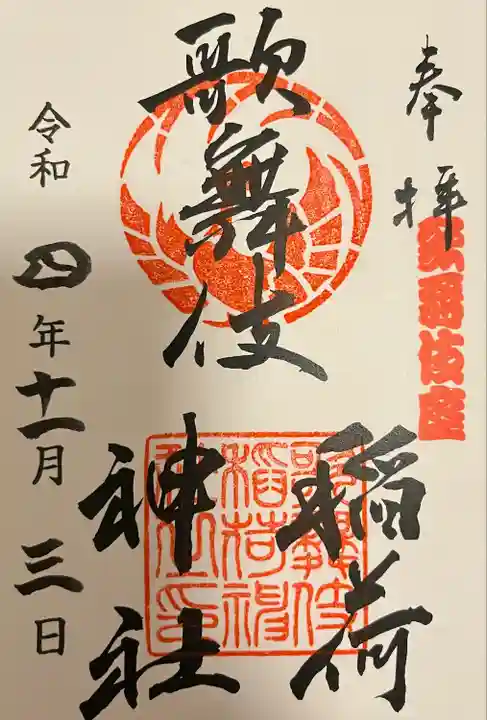 奉拝
歌舞伎座
歌舞伎
稲荷
神社
歌舞伎
稲荷神
社之印
令和四年十一月三日